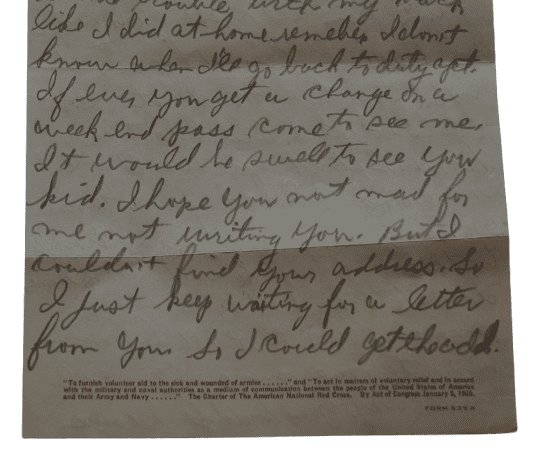 trouble with my back
like I did at home remeber I donot
know when I'll go back to duty yet.
If ever you get a change on a
week end pass come to see me.
It would be swell to see you
kid. I hope you not mad for
me not writing you. But I
couldn't find your address. So
I just keep waiting for a letter
from you so I could get the add.
"To furnish volunteer aid to the sick and wounded of armies ......" and "To act in matters of voluntary relief and in accord
with the military and naval authorities as a medium of communication between the people of the United States of America
and their Army and Navy ......" The Charter of The American National Red Cross. By Act of Congress January 5, 1905.
FORM 539 A